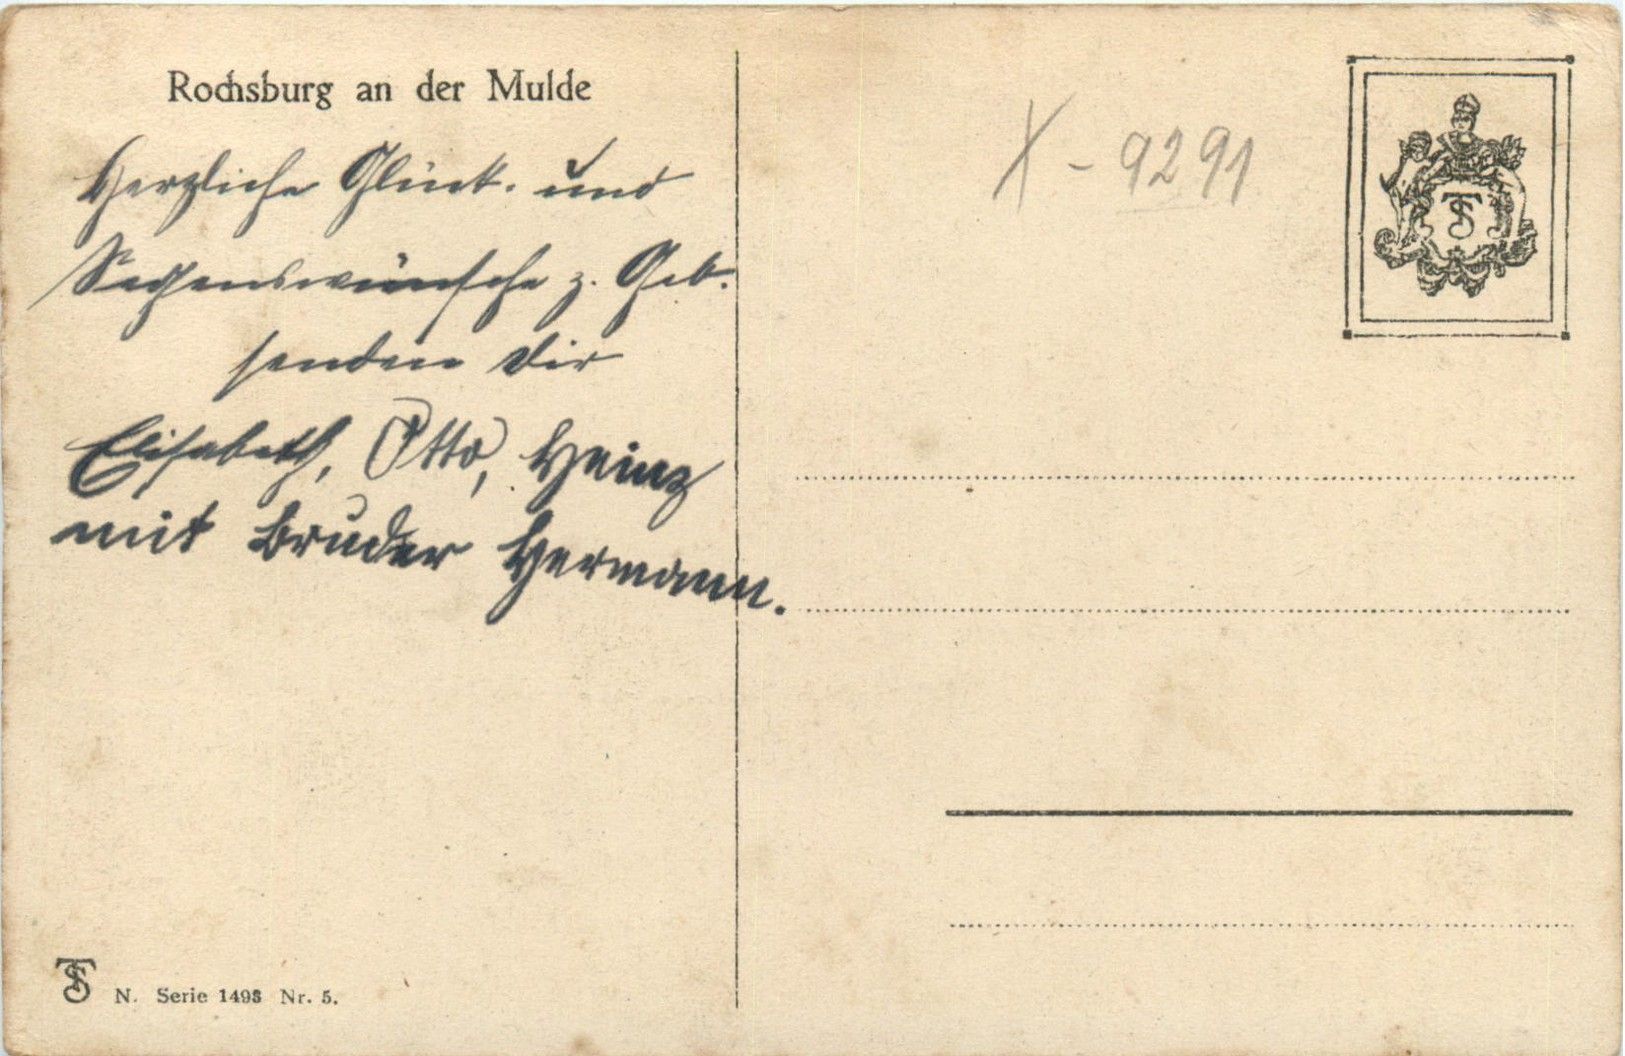 Rochsburg an der Mulde
Herzliche Glück- und
Segenswünsche z. Geb.
senden Dir
Elisabeth, Otto, Heinz
mit Bruder Hermann.
X - 9291
TS
TS N. Serie 1498 Nr. 5.